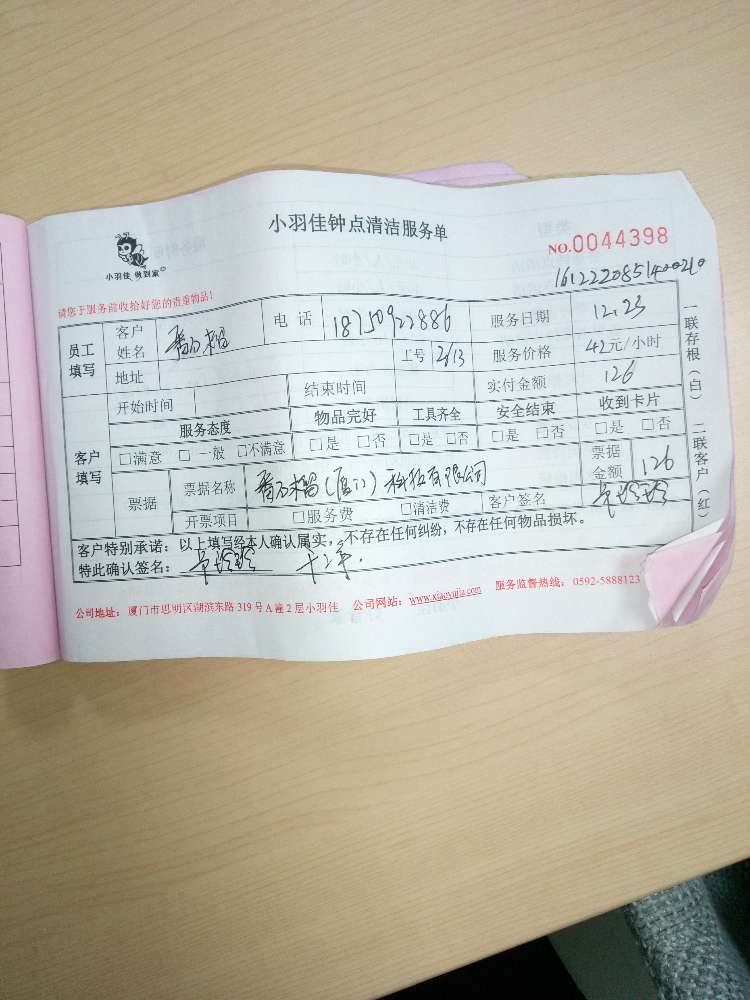 小羽佳钟点清洁服务单
小羽佳 做到家
NO.0044398
请您于服务前收给好您的贵重物品!
员工填写 客户姓名 番石榴 电话 18750922886 服务日期 12.23
地址 工号 2613 服务价格 42元/小时
客户填写 开始时间 结束时间 实付金额 126
服务态度 物品完好 工具齐全 安全结束 收到卡片
□满意 □一般 □不满意 □是 □否 □是 □否 □是 □否 □是 □否
票据 票据名称 番石榴(厦门)科技有限公司 票据金额 126
开票项目 □服务费 □清洁费 客户签名
客户特别承诺:以上填写经本人确认属实,不存在任何纠纷,不存在任何物品损坏。
特此确认签名:
公司地址:厦门市思明区湖滨东路319号A幢2层小羽佳 公司网站:www.xiaoyujia.com 服务监督热线:0592-5888123
一联存根(白) 二联客户(红)